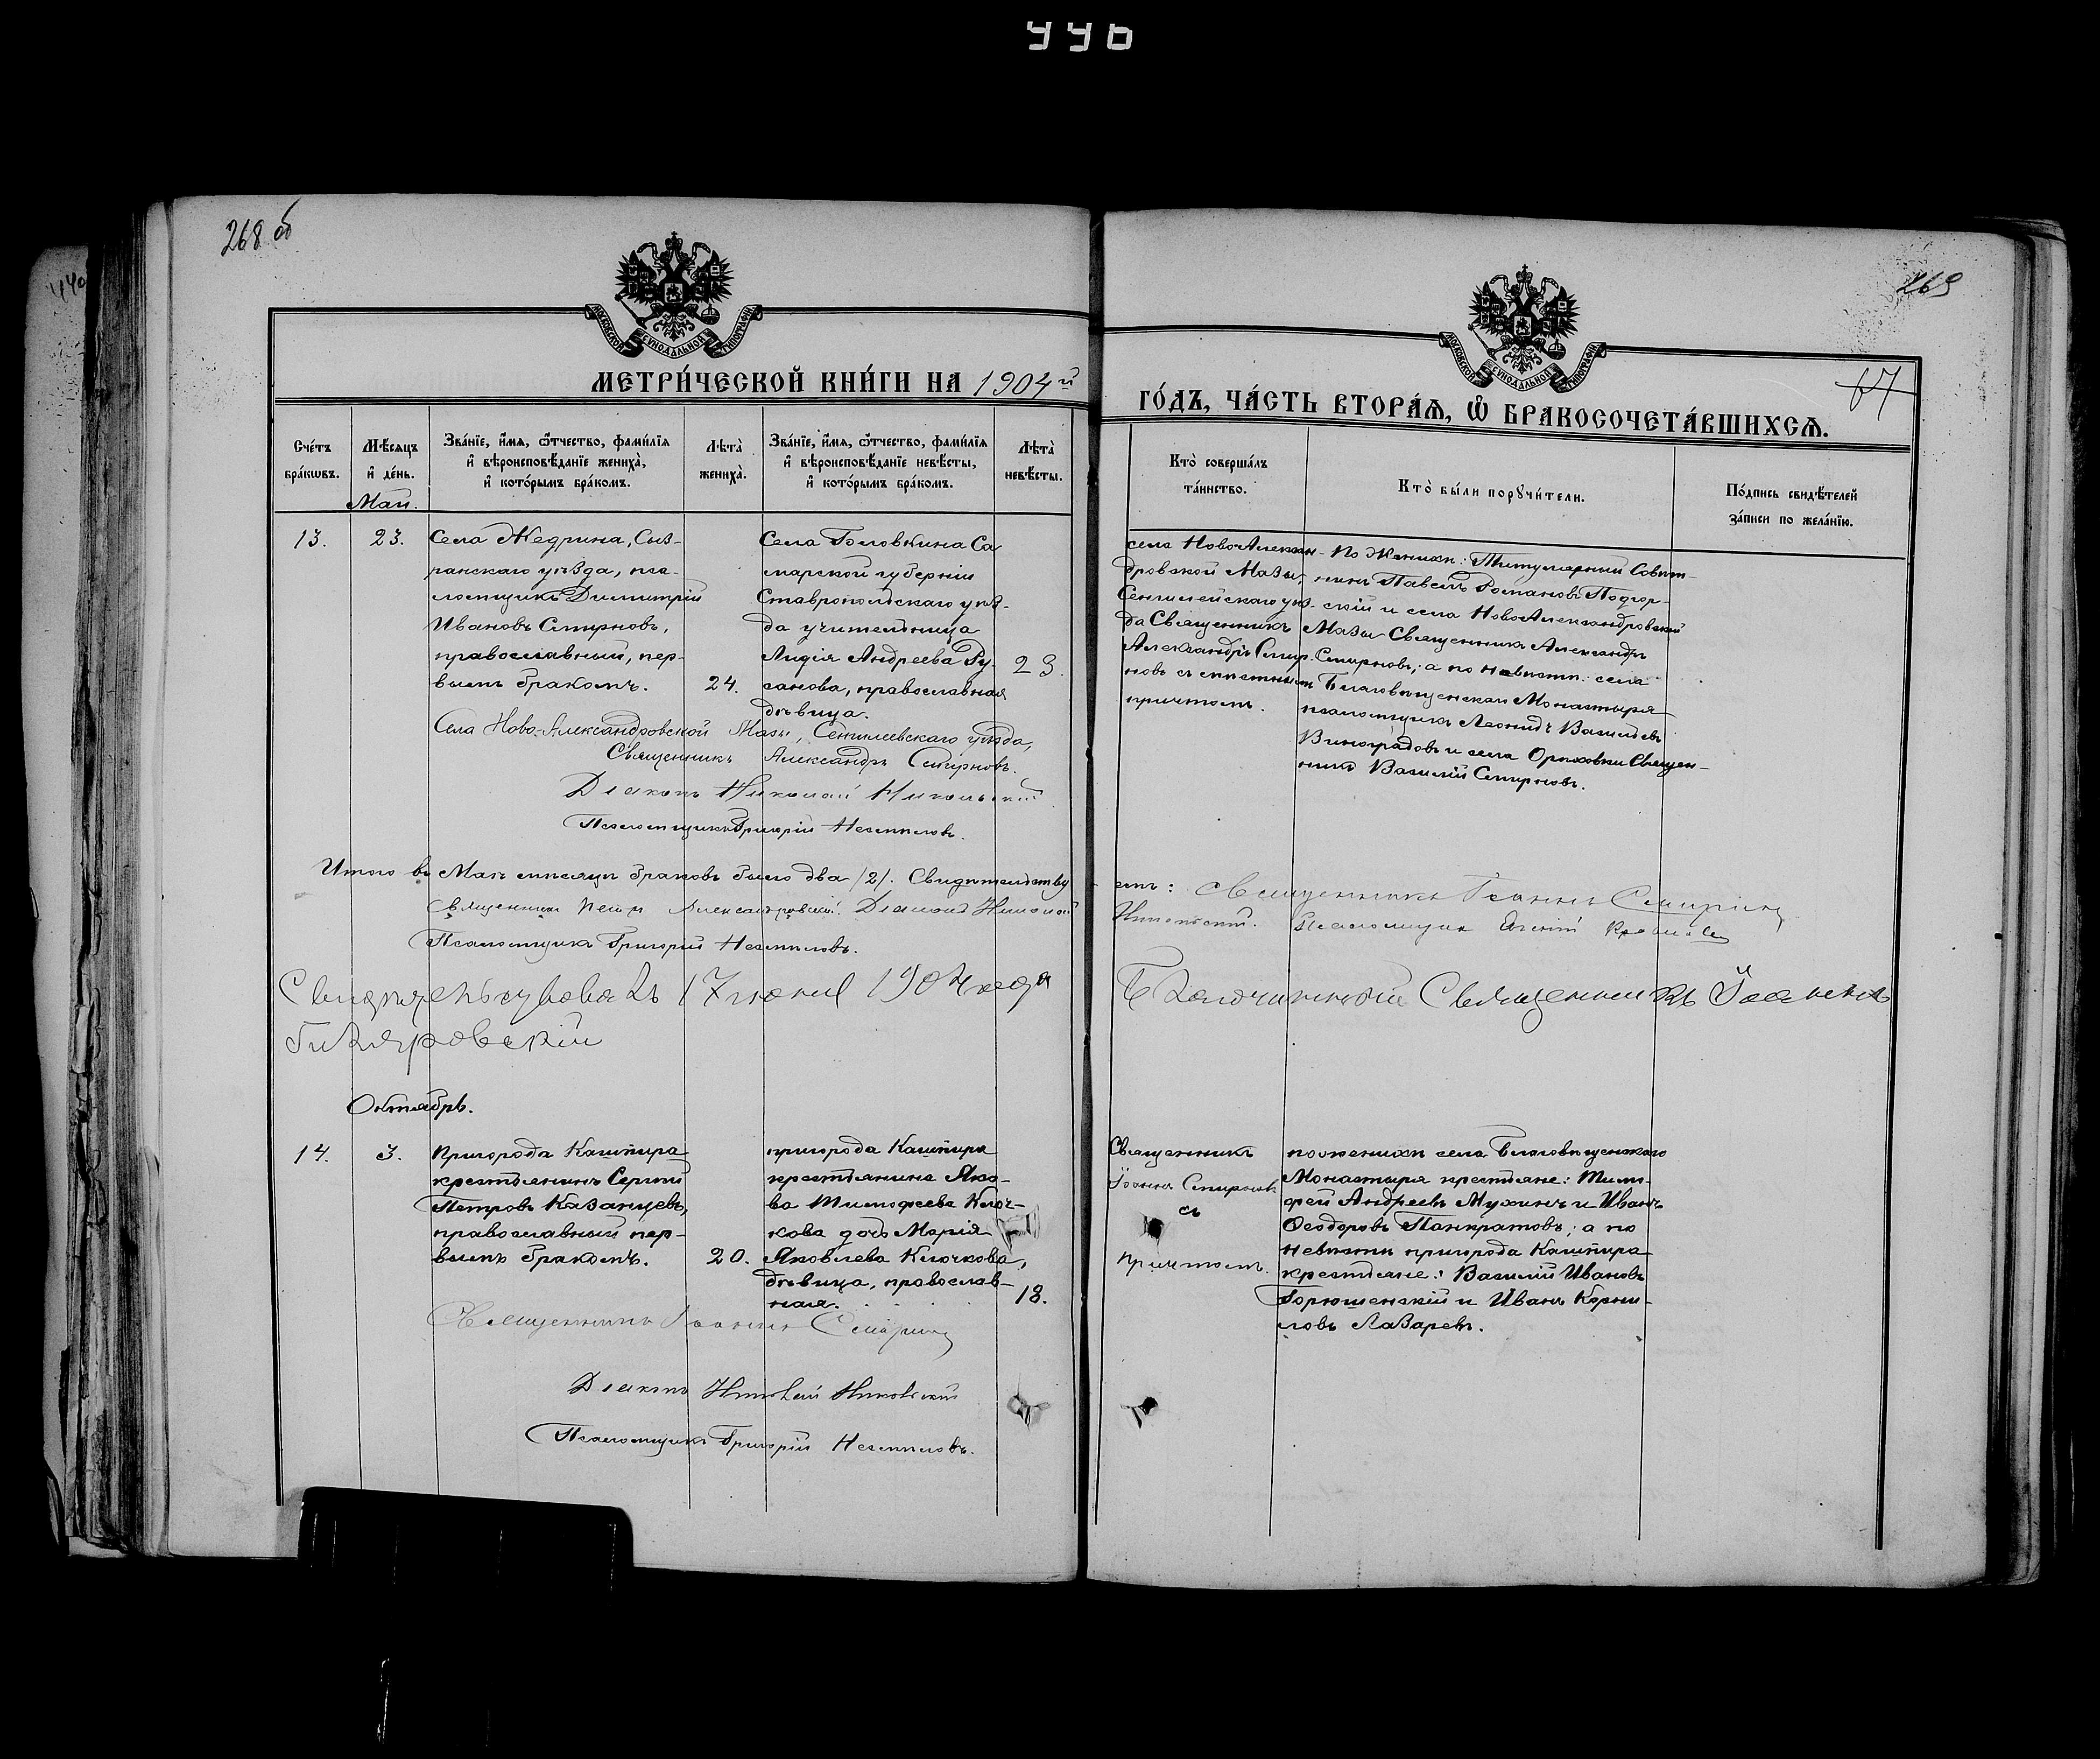 446
268 об
269
67
МОСКОВСКОЙ СѴНОДАЛЬНОЙ ТИПОГРАФІИ
МОСКОВСКОЙ СѴНОДАЛЬНОЙ ТИПОГРАФІИ
МЕТРИ́ЧЕСКОЙ КНИ́ГИ НА 1904й
ГО́ДЪ, ЧА́СТЬ ВТОРА́Ѧ, Ѽ БРАКОСОЧЕТА́ВШИХСѦ.
Сче́тъ бра́кѡвъ.
Мѣ́сяцъ и҆ де́нь.
Зва́нїе, и҆́мя, ѻ҆́тчество, фами́лїя и҆ вѣроисповѣ́данїе жениха̀, и҆ кото́рымъ бра́комъ.
Лѣта̀ жениха̀.
Зва́нїе, и҆́мя, ѻ҆́тчество, фами́лїя и҆ вѣроисповѣ́данїе невѣ́сты, и҆ кото́рымъ бра́комъ.
Лѣта̀ невѣ́сты.
Кто̀ соверша́лъ та́инство.
Кто̀ бы́ли порꙋчи́тели.
По́дпись свидѣ́телей за́писи по жела́нїю.
Май.
13.
23.
Села Жедрина, Сыз-
ранскаго уѣзда, пса-
ломщикъ Димитрій
Ивановъ Смирновъ,
православный, пер-
вымъ бракомъ.
24.
Села Головкина Са
марской губерніи
Ставропольскаго уѣз-
да учительница
Лидія Андреева Ру-
санова, православная
дѣвица.
23.
села Ново Алексан-
дровской Мазы,
Сенгилейскаго уѣз-
да Священникъ
Александръ Смир-
новъ съ мѣстнымъ
причтомъ.
По женихѣ: Титулярный Совѣт-
никъ Павелъ Романовъ Подгор-
скій и села Ново Александровской
Мазы Священникъ Александръ
Смирновъ; а по невѣстѣ: села
Благовѣщенскаго Монастыря
псаломщикъ Леонидъ Васильевъ
Виноградовъ и села Орѣховки Священ-
никъ Василій Смирновъ.
Села Ново-Александровской Мазы, Сенгилеевскаго уѣзда,
Священникъ Александръ Смирновъ.
Діаконъ Николай Никольскій
Псаломщикъ Григорій Несмѣловъ.
Итого въ Маѣ мѣсяцѣ браковъ было два /2/. Свидѣтельству
емъ: Священникъ Іоаннъ Смирновъ
Священникъ Александровскій. Діаконъ Николай
Никольскій. Псаломщикъ
Псаломщикъ Григорій Несмѣловъ.
Свидѣтельствовалъ 17 июня 1904 года
Благочинный Священникъ Іоаннъ
Гиляровскій
Октябрь.
14.
3.
Пригорода Кашпира
крестьянинъ Сергій
Петровъ Казанцевъ,
православный пер-
вымъ бракомъ.
20.
пригорода Кашпира
крестьянина Яко-
ва Тимофеева Клюг-
кова дочь Марія
Яковлева Клочкова,
дѣвица, православ-
ная.
18.
Священникъ
Іоаннъ Смирновъ
съ
причтомъ.
по женихѣ села Благовѣщенскаго
Монастыря крестьяне: Тимо-
фей Андреевъ Мухинъ и Иванъ
Ѳеодоровъ Панкратовъ; а по
невѣстѣ пригорода Кашпира
крестьяне: Василій Ивановъ
Горюшенскій и Иванъ Корни-
ловъ Лазаревъ.
Священникъ Іоаннъ Смирновъ
Діаконъ Николай Никольскій
Псаломщикъ Григорій Несмѣловъ.